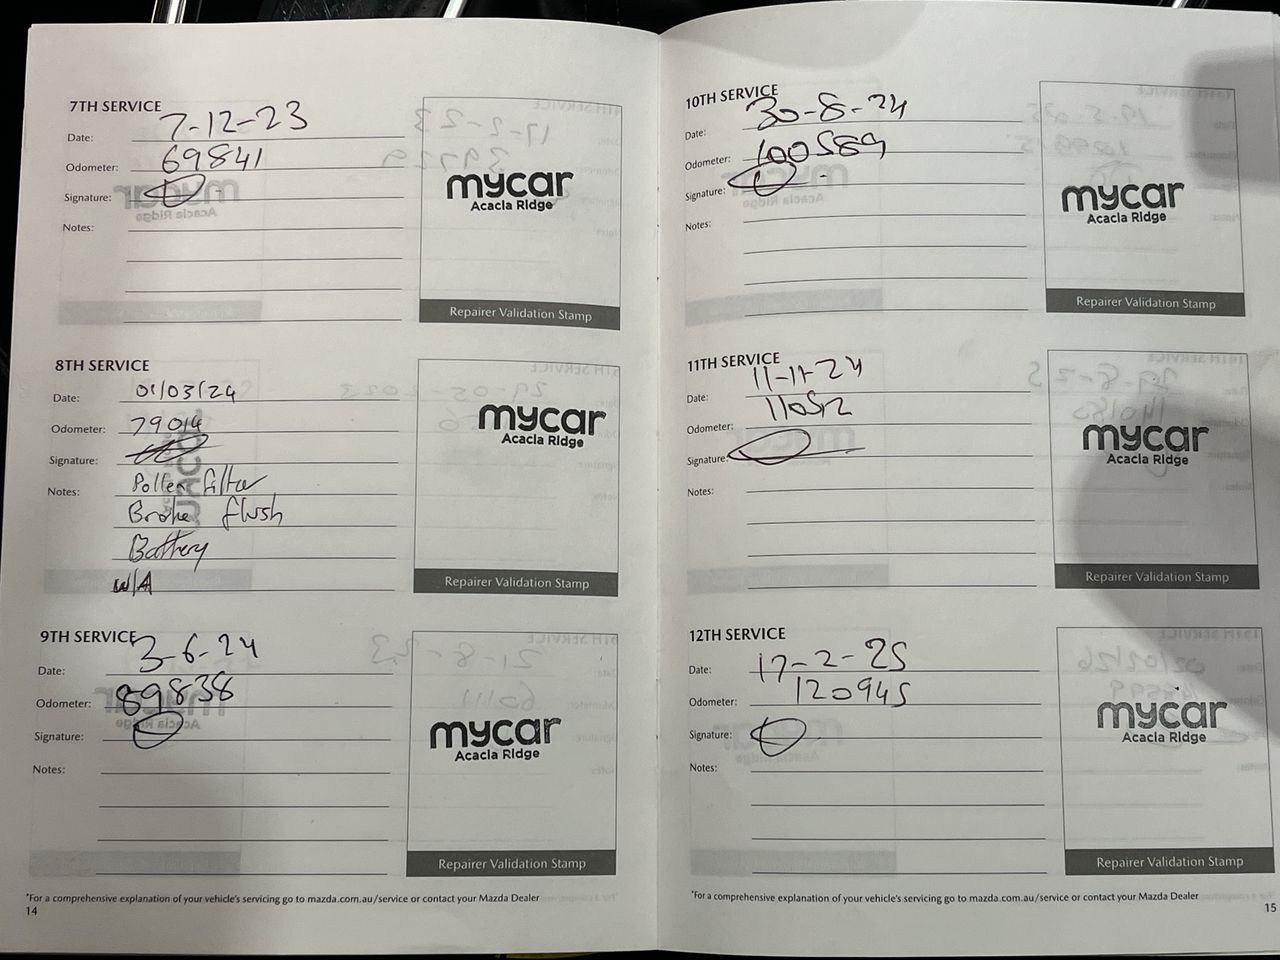 7TH SERVICE
Date: 7-12-23
Odometer: 69841
Signature:
Notes:
mycar
Acacia Ridge
Repairer Validation Stamp
8TH SERVICE
Date: 01/03/24
Odometer: 79014
Signature:
Notes: Pollen filter
Brake flush
Battery
W/A
mycar
Acacia Ridge
Repairer Validation Stamp
9TH SERVICE
Date: 3-6-24
Odometer: 89838
Signature:
Notes:
mycar
Acacia Ridge
Repairer Validation Stamp
*For a comprehensive explanation of your vehicle's servicing go to mazda.com.au/service or contact your Mazda Dealer
14
10TH SERVICE
Date: 30-8-24
Odometer: 100589
Signature:
Notes:
mycar
Acacia Ridge
Repairer Validation Stamp
11TH SERVICE
Date: 11-11-24
Odometer: 110512
Signature:
Notes:
mycar
Acacia Ridge
Repairer Validation Stamp
12TH SERVICE
Date: 17-2-25
Odometer: 120945
Signature:
Notes:
mycar
Acacia Ridge
Repairer Validation Stamp
*For a comprehensive explanation of your vehicle's servicing go to mazda.com.au/service or contact your Mazda Dealer
15